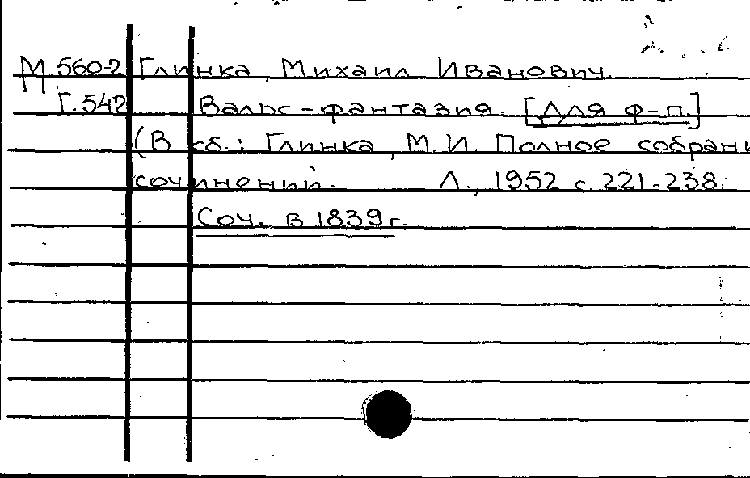 М 560-2 Глинка, Михаил Иванович.
Г.542 Вальс-фантазия. [Для ф-п.]
(В кб.: Глинка, М.И. Полное собрани
сочинений. Л., 1952 с. 221-238.
Соч. в 1839 г.